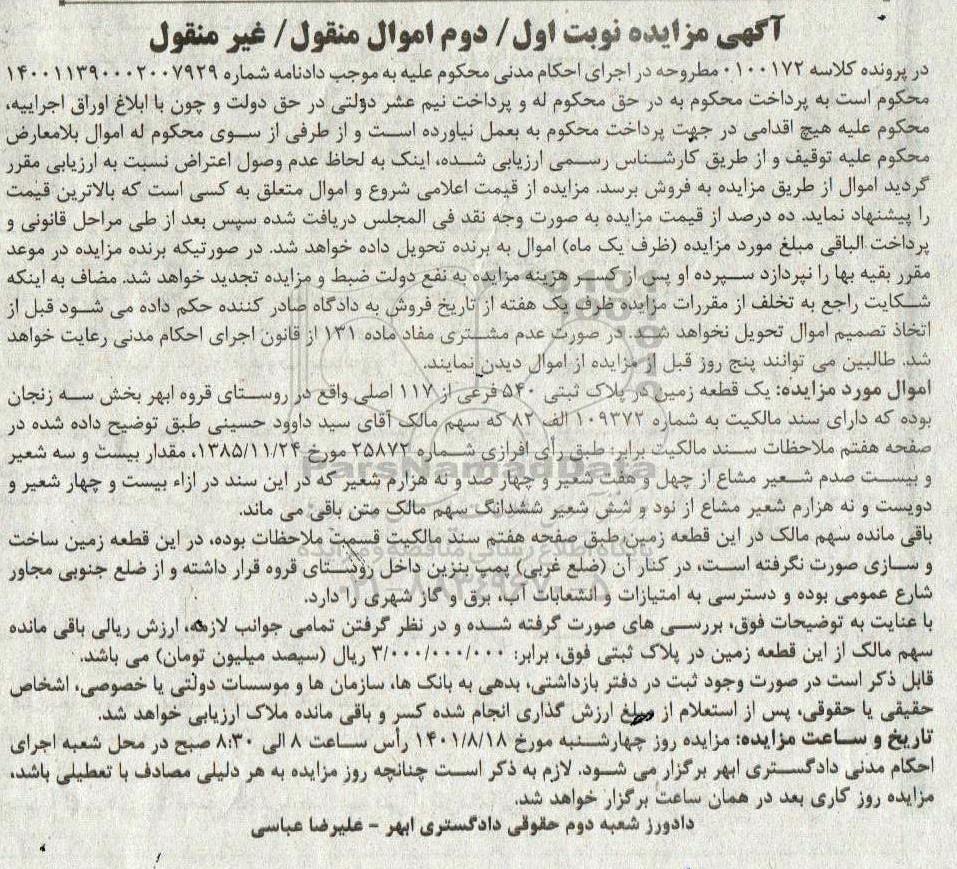 آگهی مزایده نوبت اول/ دوم اموال منقول/ غیر منقول
در پرونده کلاسه ۰۱۰۰۱۷۲ مطروحه در اجرای احکام مدنی محکوم علیه به موجب دادنامه شماره ۱۴۰۰۱۱۳۹۰۰۰۲۰۰۷۹۲۹
محکوم است به پرداخت محکوم به در حق محکوم له و پرداخت نیم عشر دولتی در حق دولت و چون با ابلاغ اوراق اجراییه،
محکوم علیه هیچ اقدامی در جهت پرداخت محکوم به بعمل نیاورده است و از طرفی از سوی محکوم له اموال بلامعارض
محکوم علیه توقیف و از طریق کارشناس رسمی ارزیابی شده، اینک به لحاظ عدم وصول اعتراض نسبت به ارزیابی مقرر
گردید اموال از طریق مزایده به فروش برسد. مزایده از قیمت اعلامی شروع و اموال متعلق به کسی است که بالاترین قیمت
را پیشنهاد نماید. ده درصد از قیمت مزایده به صورت وجه نقد فی المجلس دریافت شده سپس بعد از طی مراحل قانونی و
پرداخت الباقی مبلغ مورد مزایده (ظرف یک ماه) اموال به برنده تحویل داده خواهد شد. در صورتیکه برنده مزایده در موعد
مقرر بقیه بها را نپردازد سپرده او پس از کسر هزینه مزایده به نفع دولت ضبط و مزایده تجدید خواهد شد. مضاف به اینکه
شکایت راجع به تخلف از مقررات مزایده ظرف یک هفته از تاریخ فروش به دادگاه صادر کننده حکم داده می شود قبل از
اتخاذ تصمیم اموال تحویل نخواهد شد. در صورت عدم مشتری مفاد ماده ۱۳۱ از قانون اجرای احکام مدنی رعایت خواهد
شد. طالبین می توانند پنج روز قبل از مزایده از اموال دیدن نمایند.
اموال مورد مزایده: یک قطعه زمین در پلاک ثبتی ۵۴۰ فرعی از ۱۱۷ اصلی واقع در روستای قروه ابهر بخش سه زنجان
بوده که دارای سند مالکیت به شماره ۱۰۹۳۷۲ الف ۸۲ که سهم مالک آقای سید داوود حسینی طبق توضیح داده شده در
صفحه هفتم ملاحظات سند مالکیت برابر: طبق رأی افرازی شماره ۲۵۸۷۲ مورخ ۱۳۸۵/۱۱/۲۴، مقدار بیست و سه شعیر
و بیست صدم شعیر مشاع از چهل و هفت شعیر و چهار صد و نه هزارم شعیر که در این سند در ازاء بیست و چهار شعیر و
دویست و نه هزارم شعیر مشاع از نود و شش شعیر ششدانگ سهم مالک متن باقی می ماند.
باقی مانده سهم مالک در این قطعه زمین طبق صفحه هفتم سند مالکیت قسمت ملاحظات بوده، در این قطعه زمین ساخت
و سازی صورت نگرفته است، در کنار آن (ضلع غربی) پمپ بنزین داخل روستای قروه قرار داشته و از ضلع جنوبی مجاور
شارع عمومی بوده و دسترسی به امتیازات و انشعابات آب، برق و گاز شهری را دارد.
با عنایت به توضیحات فوق، بررسی های صورت گرفته شده و در نظر گرفتن تمامی جوانب لازمه، ارزش ریالی باقی مانده
سهم مالک از این قطعه زمین در پلاک ثبتی فوق، برابر: ۳/۰۰۰/۰۰۰/۰۰۰ ریال (سیصد میلیون تومان) می باشد.
قابل ذکر است در صورت وجود ثبت در دفتر بازداشتی، بدهی به بانک ها، سازمان ها و موسسات دولتی یا خصوصی، اشخاص
حقیقی یا حقوقی، پس از استعلام از مبلغ ارزش گذاری انجام شده کسر و باقی مانده ملاک ارزیابی خواهد شد.
تاریخ و ساعت مزایده: مزایده روز چهارشنبه مورخ ۱۴۰۱/۸/۱۸ رأس ساعت ۸ الی ۸:۳۰ صبح در محل شعبه اجرای
احکام مدنی دادگستری ابهر برگزار می شود. لازم به ذکر است چنانچه روز مزایده به هر دلیلی مصادف با تعطیلی باشد،
مزایده روز کاری بعد در همان ساعت برگزار خواهد شد.
دادورز شعبه دوم حقوقی دادگستری ابهر - علیرضا عباسی
ParsNamadData
پایگاه اطلاع رسانی مناقصه و مزایده